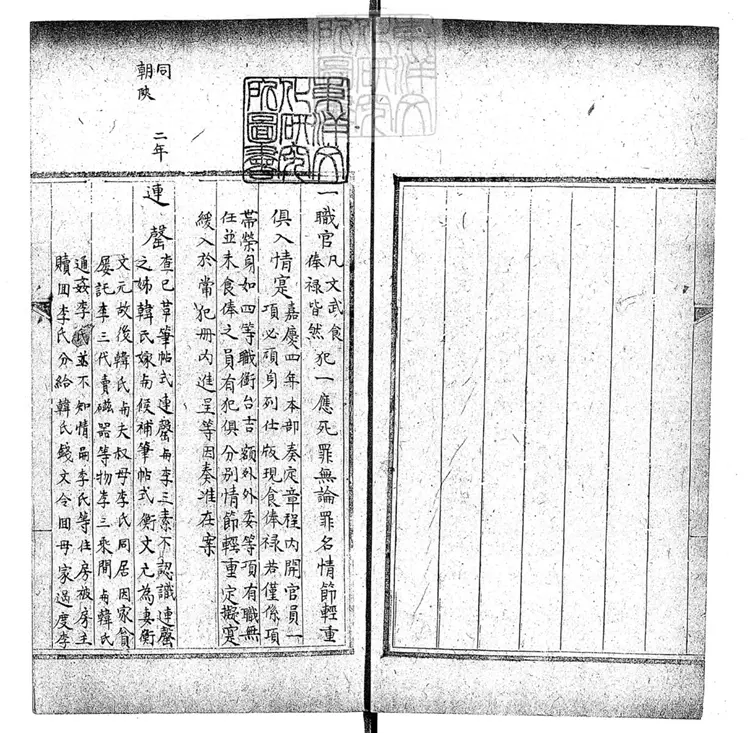 東洋文
化研究
所圖書
一職官凡文武食俸祿皆然犯一應死罪無論罪名情節輕重
俱入情寔嘉慶四年本部奏定章程內開官員一
項必須身列仕版現食俸祿若僅係項
帶榮身如四等職銜台吉額外外委等項有職無
任並未食俸之員有犯俱分別情節輕重定擬寔
緩入於常犯冊內進呈等因奏准在案
同
朝陝
二年
連罄查已革筆帖式連罄與李三素不認識連罄
之姊韓氏嫁與候補筆帖式衡文元為妻衡
文元故後韓氏與夫叔母李氏同居因家貧
屢託李三代賣磁器等物李三乘間與韓氏
通姦李氏並不知情嗣李氏等住房被房主
贖回李氏分給韓氏錢文令回母家過度李